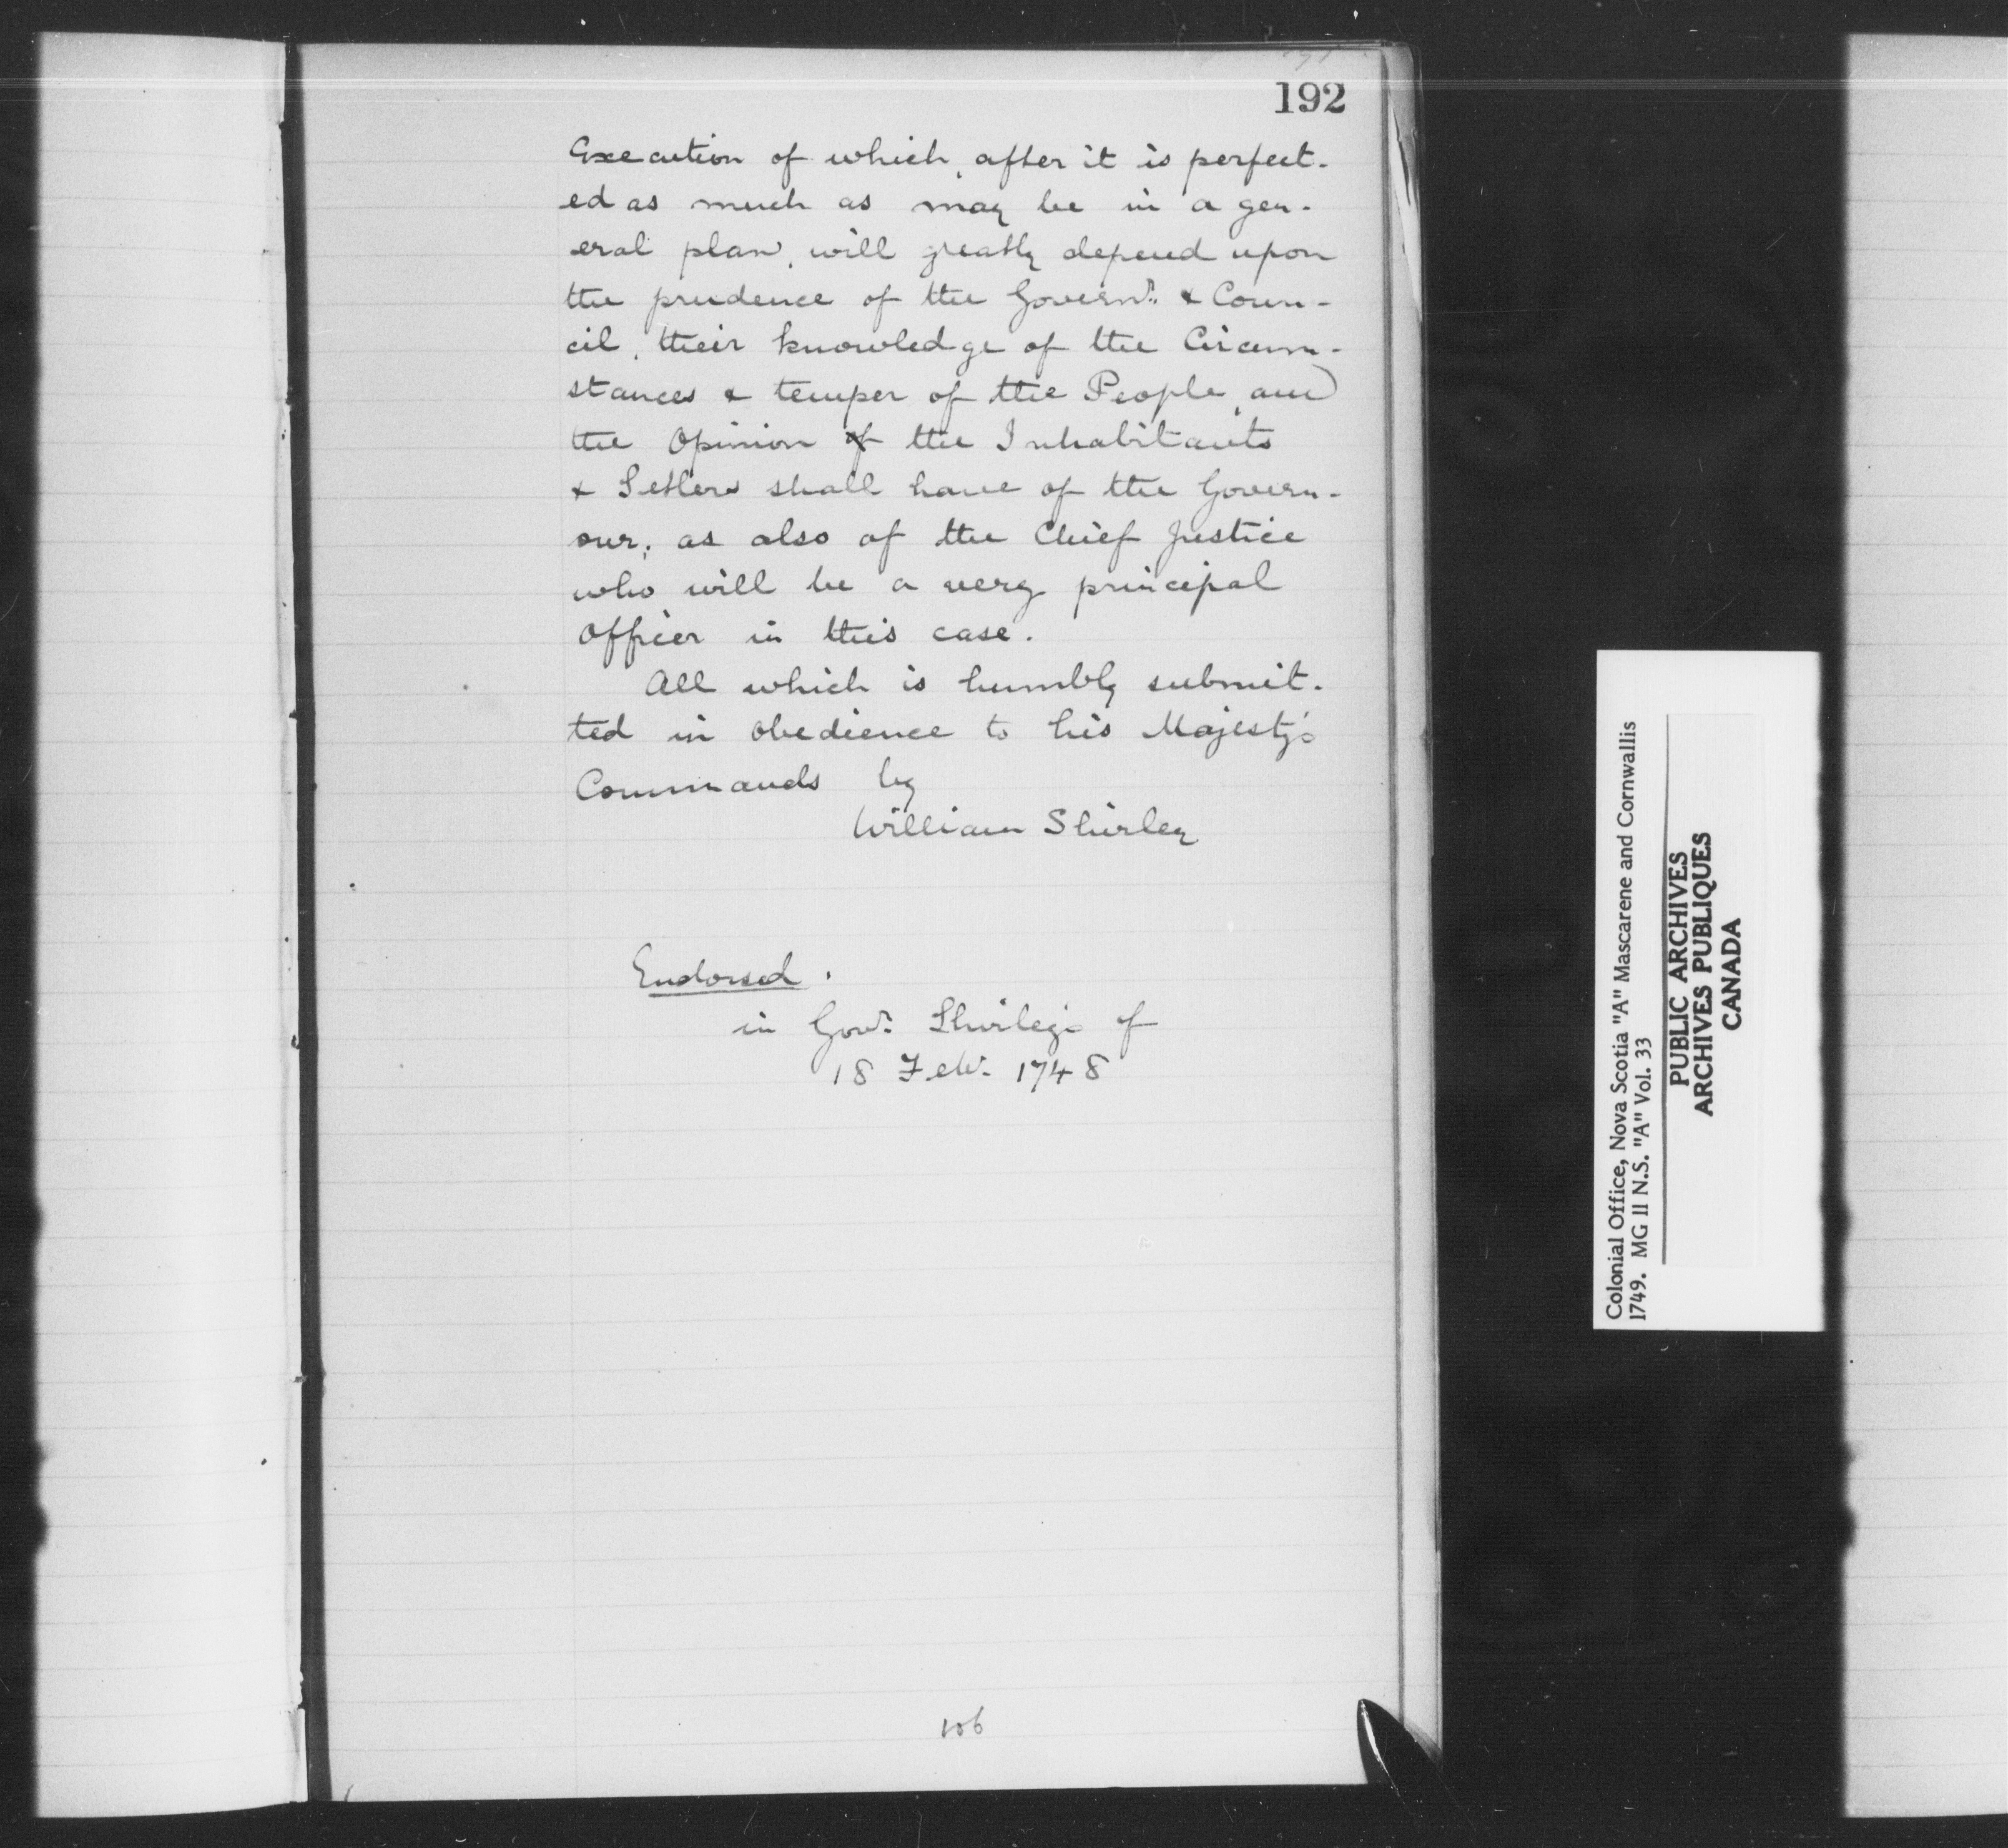 192
Execution of which, after it is perfect-
ed as much as may be in a gen-
eral plan, will greatly depend upon
the prudence of the Governr. & Coun-
cil, their knowledge of the Circum-
stances & temper of the People, and
the Opinion of the Inhabitants
& Setlers shall have of the Govern-
our; as also of the Chief Justice
who will be a very principal
Officer in this case.
All which is humbly submit-
ted in Obedience to his Majesty's
Commands by
William Shirley
Endorsed.
in Govr. Shirley's of
18 Febr. 1748
106
Colonial Office, Nova Scotia "A" Mascarene and Cornwallis
1749. MG 11 N.S. "A" Vol. 33
PUBLIC ARCHIVES
ARCHIVES PUBLIQUES
CANADA